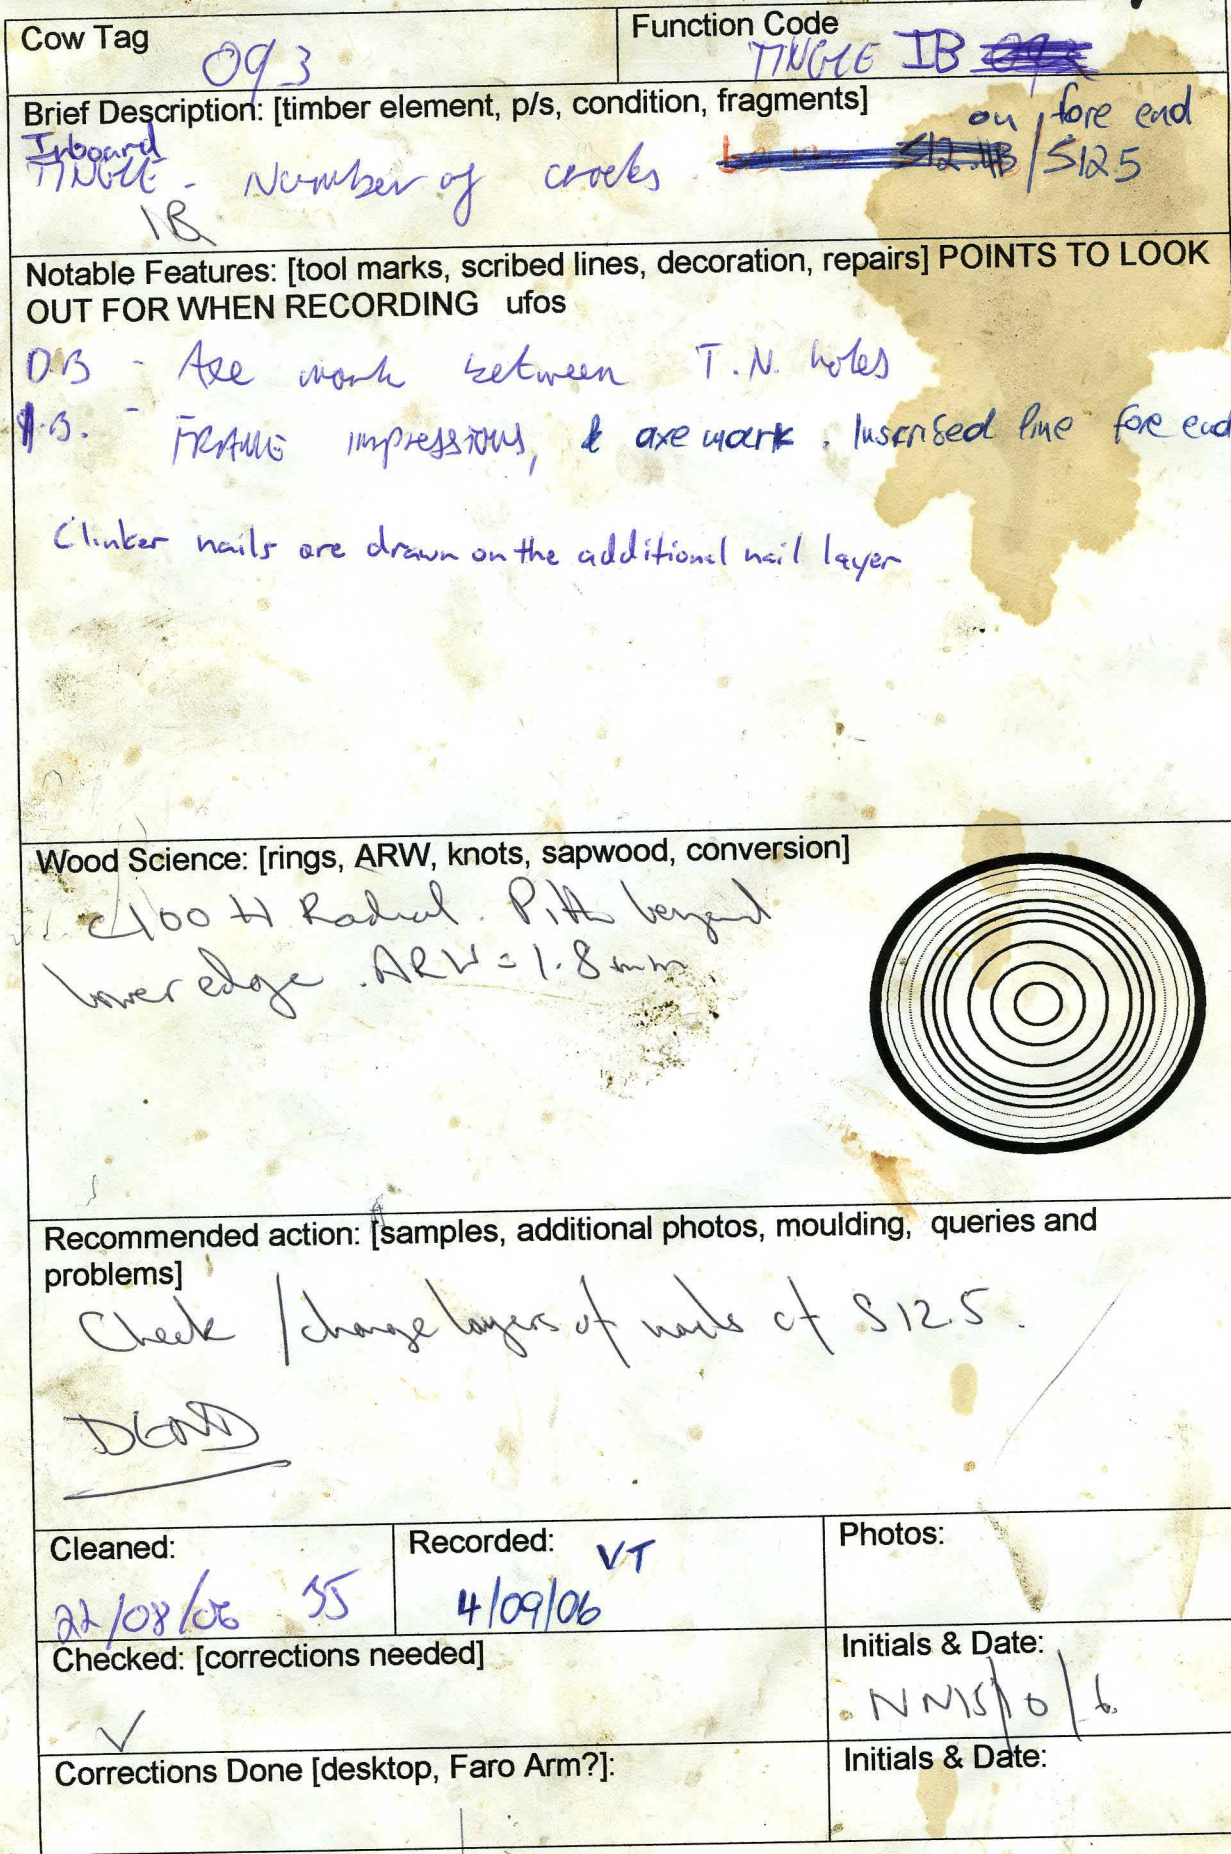 Cow Tag
093
Function Code
TINGLE IB
Brief Description: [timber element, p/s, condition, fragments]
on fore end
Inboard
TINGLE - Number of cracks. S12.4B/S12.5
IB
Notable Features: [tool marks, scribed lines, decoration, repairs] POINTS TO LOOK
OUT FOR WHEN RECORDING ufos
O.B - Axe mark between T.N. holes
I.B. - FRAME impressions, & axe mark. Inscribed line fore end
Clinker nails are drawn on the additional nail layer
Wood Science: [rings, ARW, knots, sapwood, conversion]
c100 H Radial. Pith beyond
lower edge. ARW = 1.8mm
Recommended action: [samples, additional photos, moulding, queries and
problems]
Check / change layers of nails cf S12.5.
Cleaned:
22/08/06
Recorded: VT
4/09/06
Photos:
Checked: [corrections needed]
✓
Initials & Date:
NN 15/10/6
Corrections Done [desktop, Faro Arm?]:
Initials & Date: